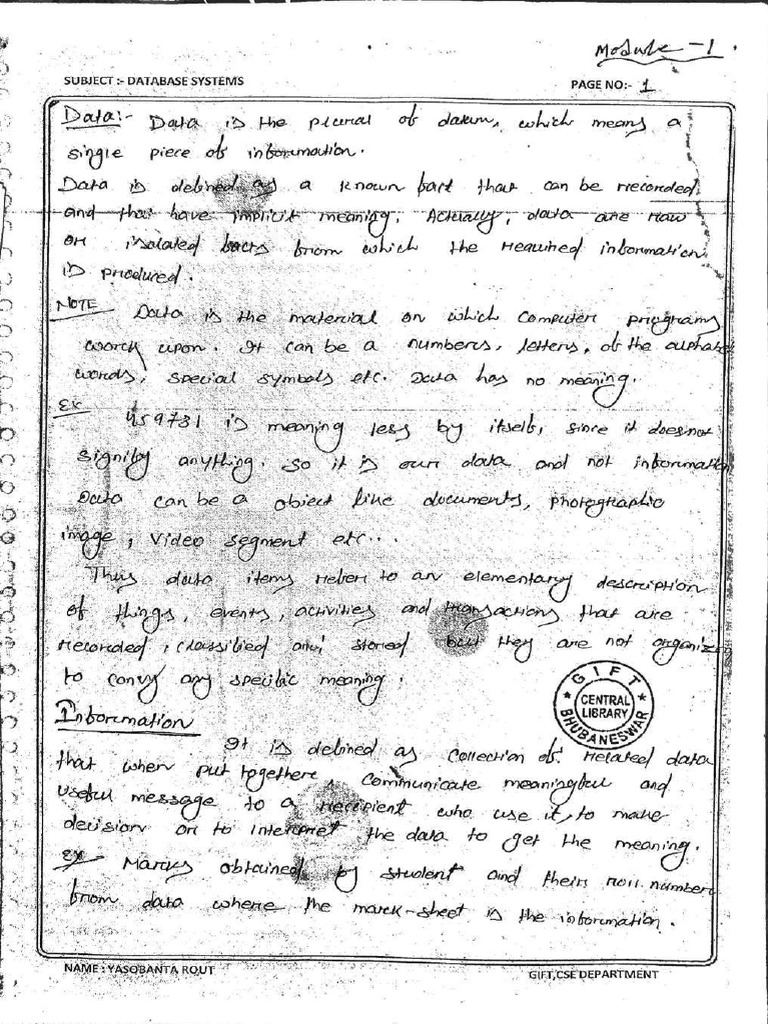 Module - 1
SUBJECT :- DATABASE SYSTEMS
PAGE NO:- 1
Data:- Data is the plural of datum, which means a
single piece of information.
Data is defined as a known fact that can be recorded
and that have implicit meaning. Actually, data are raw
or isolated facts from which the required information
is produced.
NOTE Data is the material on which computer programs
work upon. It can be a numbers, letters, of the alphabe
words, special symbols etc. Data has no meaning.
Ex 459731 is meaning less by itself, since it doesnot
signify anything. So it is our data and not informatio
Data can be a object like documents, photographic
image, video segment etc...
Thus data items refer to an elementary description
of things, events, activities and transactions that are
recorded, classified and stored but they are not organize
to convy any specific meaning.
GIFT
CENTRAL
LIBRARY
BHUBANESWAR
Information
It is defined as collection of related data
that when put togethere, communicate meaningful and
useful message to a recipient who use it, to make
decision or to interpret the data to get the meaning.
Ex Marks obtained by student and their roll number
from data where the mark-sheet is the information.
NAME : YASOBANTA ROUT
GIFT,CSE DEPARTMENT